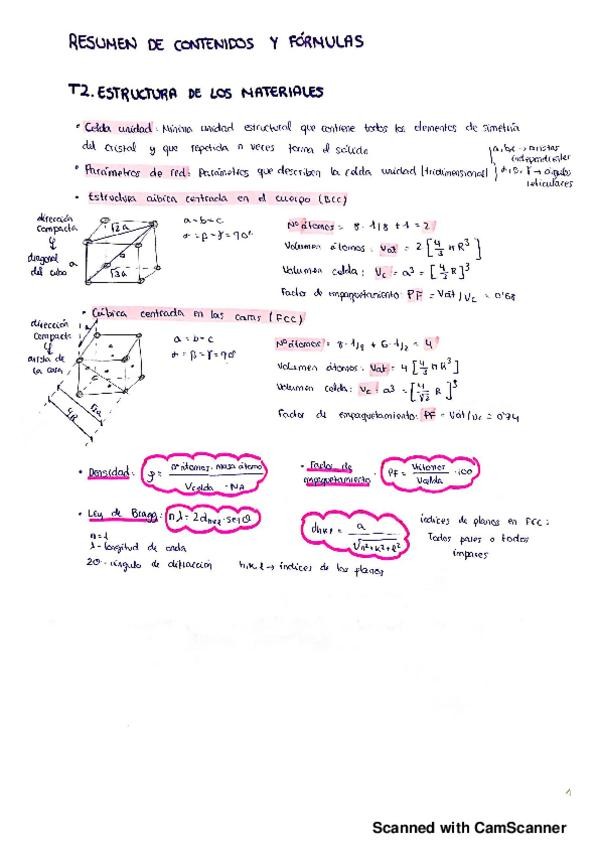 RESUMEN DE CONTENIDOS Y FÓRMULAS
T2. ESTRUCTURA DE LOS MATERIALES
• Celda unidad: Mínima unidad estructural que contiene todos los elementos de simetría
del cristal y que repetida n veces forma el sólido
• Parámetros de red: Parámetros que describen la celda unidad (tridimensional) { a, b, c → aristas independientes
α, β, γ → ángulos
• Estructura cúbica centrada en el cuerpo (BCC)
dirección
compacta
diagonal
del cubo
a
√2a
√3a
a=b=c
α=β=γ=90°
Nº átomos = 8·1/8 + 1 = 2
Volumen átomos: Vat = 2 [4/3 π R³]
Volumen celda: Vc = a³ = [4/√3 R]³
Factor de empaquetamiento: PF = Vat/Vc = 0'68
• Cúbica centrada en las caras (FCC)
dirección
compacta
arista de
la cara
4R
√2a
a=b=c
α=β=γ=90°
Nº átomos = 8·1/8 + 6·1/2 = 4
Volumen átomos: Vat = 4 [4/3 π R³]
Volumen celda: Vc = a³ = [4/√2 R]³
Factor de empaquetamiento: PF = Vat/Vc = 0'74
• Densidad: ρ = nº átomos · masa átomo / Vcelda · NA
• Factor de empaquetamiento: PF = Vátomos / Vcelda · 100
• Ley de Bragg: nλ = 2dhkl · senθ
dhkl = a / √h²+k²+l²
índices de planos en FCC:
Todos pares o todos
impares
n=1
λ- longitud de onda
2θ- ángulo de difracción
h,k,l → índices de los planos
1
Scanned with CamScanner